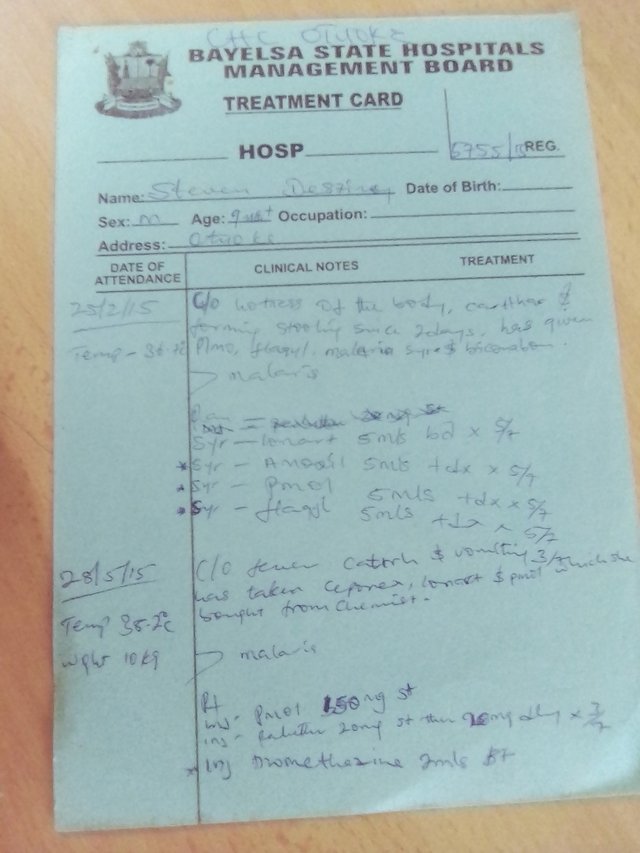 CHC OTUOKE
BAYELSA STATE HOSPITALS
MANAGEMENT BOARD
TREATMENT CARD
HOSP
5755/15 REG.
Name: Steven Destiney Date of Birth:
Sex: m Age: Occupation:
Address: Otuoke
DATE OF ATTENDANCE CLINICAL NOTES TREATMENT
25/2/15 C/o hotness of the body, catthar &
stooling since 2days, has given
Temp - Pmol, flagyl,
malaria
Syr - lonart 5mls bd x 5/7
Syr - Amoxil 5mls tdx x 5/7
Syr - Pmol 5mls tdx x 5/7
Syr - flagyl 5mls tdx x 5/7
28/5/15 C/o fever cattrh & vomiting 3/7
has taken lonart & pmol which she
Temp bought from Chemist.
Wght 10kg malaria
Inj - Pmol 150mg st
Inj - 20mg st then dly x 3/7
Inj Promethazine 2mls st